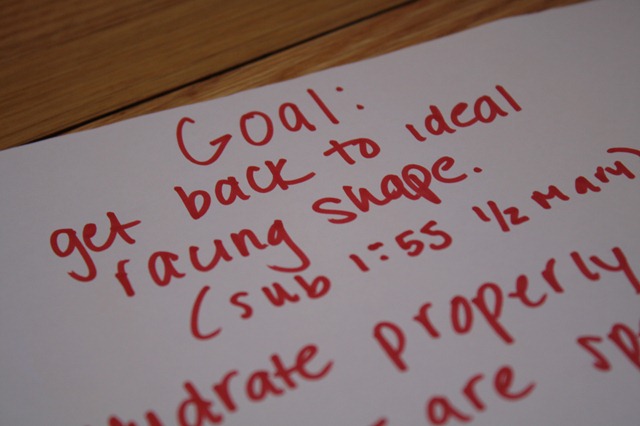 Goal:
get back to ideal
racing shape.
(sub 1:55 1/2 Mary)
hydrate properly
are